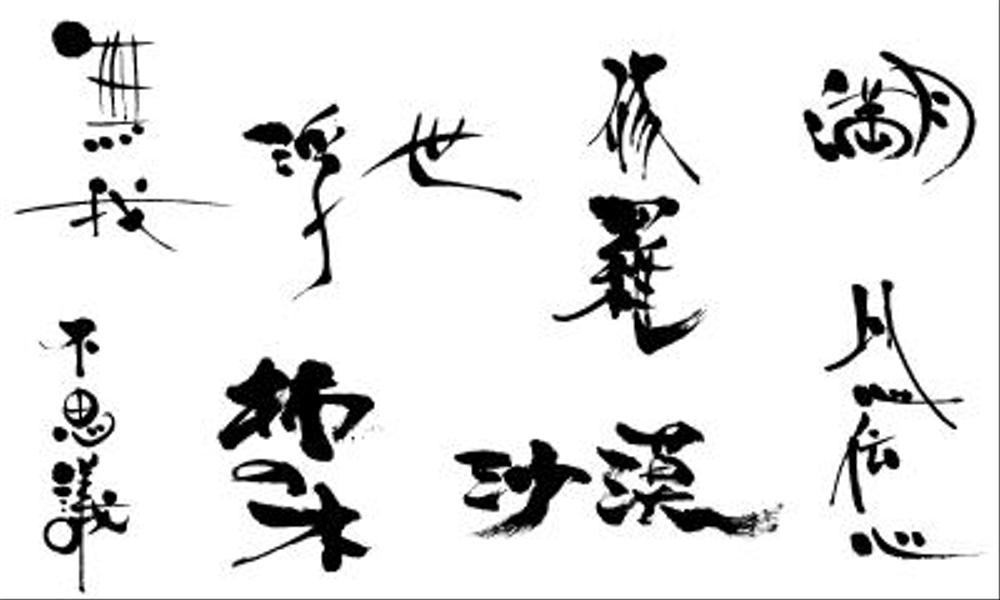 無我
浮世
修羅
満月
不思議
柿の木
沙漠
以心伝心